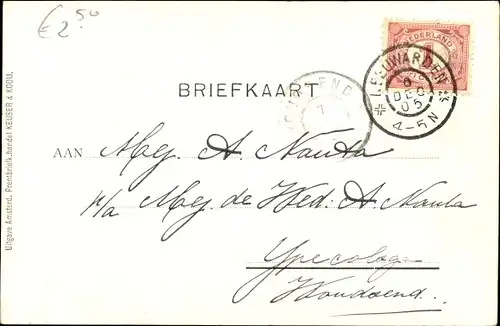 €2.50
NEDERLAND
1
LEEUWARDEN
6
DEC
05
4-5N
BRIEFKAART
7
AAN Mej. A. Nauta
p/a Mej. de Wed: A. Nauta
Ypecolsga
Woudsend.
Uitgave Amsterd. Prentbriefk.handel KEUSER & KOOIJ.